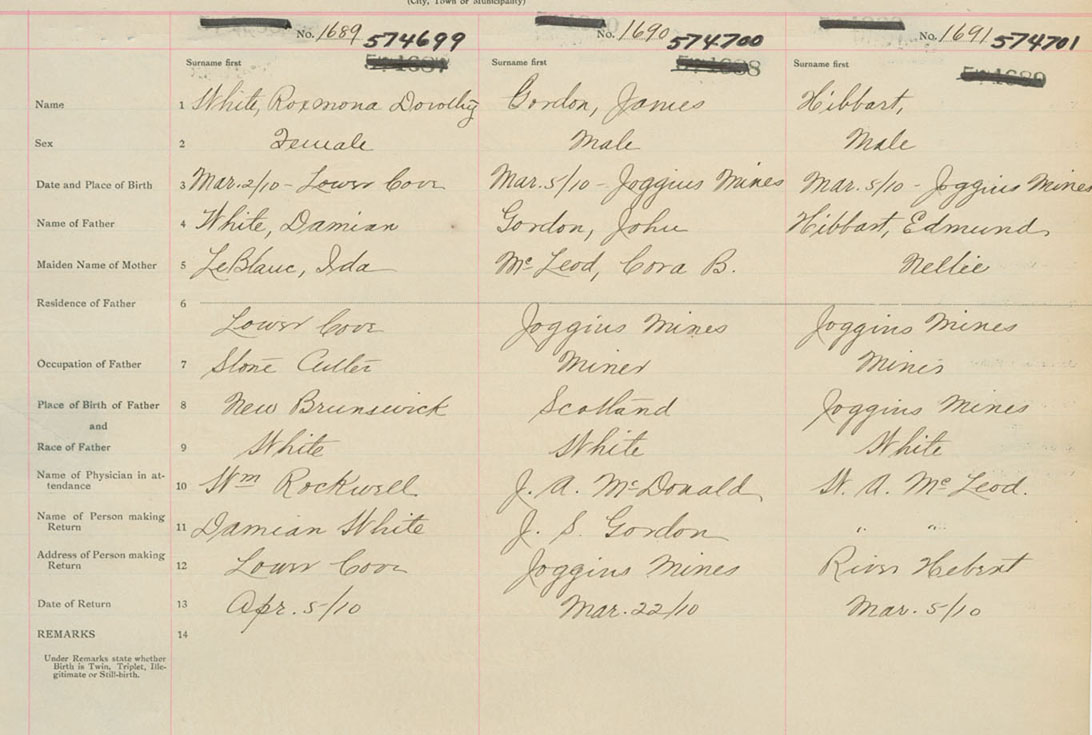 (City, Town or Municipality)
No. 1689 574699 No. 1690 574700 No. 1691 574701
Surname first Surname first Surname first
Name 1 White, Roxmona Dorothy Gordon, James Hibbart,
Sex 2 Female Male Male
Date and Place of Birth 3 Mar. 2/10 - Lower Cove Mar. 5/10 - Joggins Mines Mar. 5/10 - Joggins Mines
Name of Father 4 White, Damian Gordon, John Hibbart, Edmund
Maiden Name of Mother 5 LeBlanc, Ida McLeod, Cora B. Nellie
Residence of Father 6
Lower Cove Joggins Mines Joggins Mines
Occupation of Father 7 Stone Cutter Miner Miner
Place of Birth of Father 8 New Brunswick Scotland Joggins Mines
and
Race of Father 9 White White White
Name of Physician in at-
tendance 10 Wm Rockwell J. A. McDonald W. A. McLeod.
Name of Person making
Return 11 Damian White J. S. Gordon " "
Address of Person making
Return 12 Lower Cove Joggins Mines River Hebert
Date of Return 13 Apr. 5/10 Mar. 22/10 Mar. 5/10
REMARKS 14
Under Remarks state whether
Birth is Twin, Triplet, Ille-
gitimate or Still-birth.